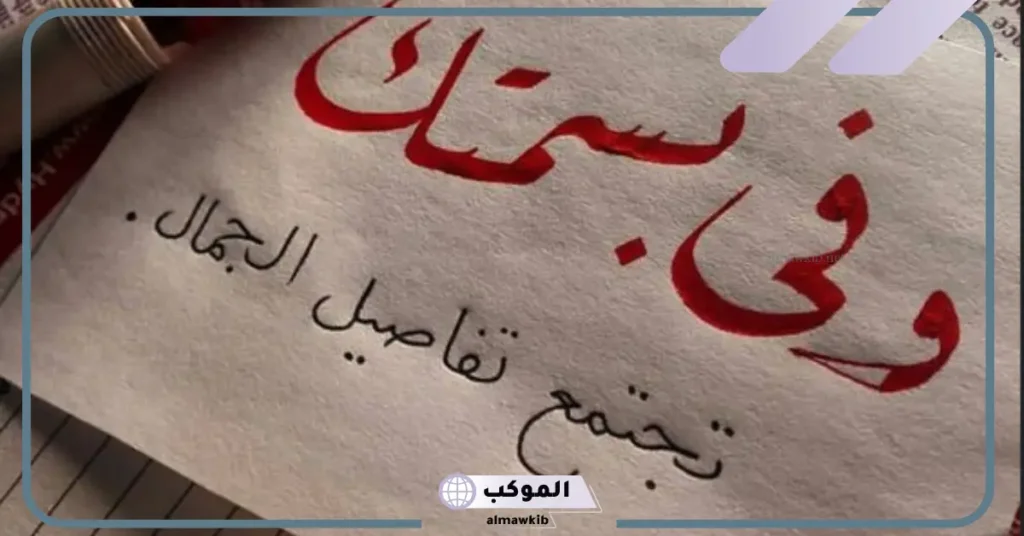 وفي بسمتك
تجتمع تفاصيل الجمال.
الموكب
almawkib